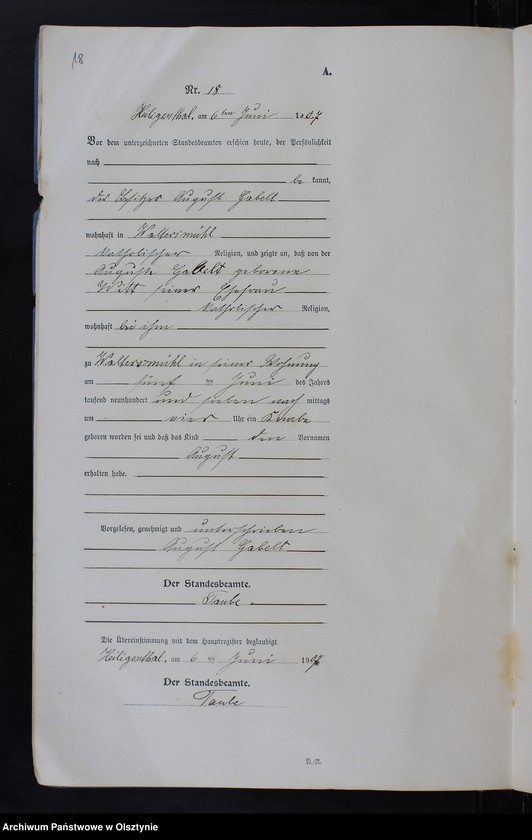 18
A.
Nr. 18
Heiligenthal, am 6ten Juni 1907
Vor dem unterzeichneten Standesbeamten erschien heute, der Persönlichkeit
nach
be kannt,
der Besitzer August Gabelt
wohnhaft in Woltersmühl
katholischer Religion, und zeigte an, daß von der
Auguste Gabelt geborene
Witt seiner Ehefrau
katholischer Religion,
wohnhaft bei ihm
zu Woltersmühl in seiner Wohnung
am fünf ten Juni des Jahres
tausend neunhundert und sieben nach mittags
um vier Uhr ein Knabe
geboren worden sei und daß das Kind den Vornamen
August
erhalten habe.
Vorgelesen, genehmigt und unterschrieben
August Gabelt
Der Standesbeamte.
Taube.
Die Übereinstimmung mit dem Hauptregister beglaubigt
Heiligenthal, am 6 ten Juni 1907
Der Standesbeamte.
Taube
Archiwum Państwowe w Olsztynie